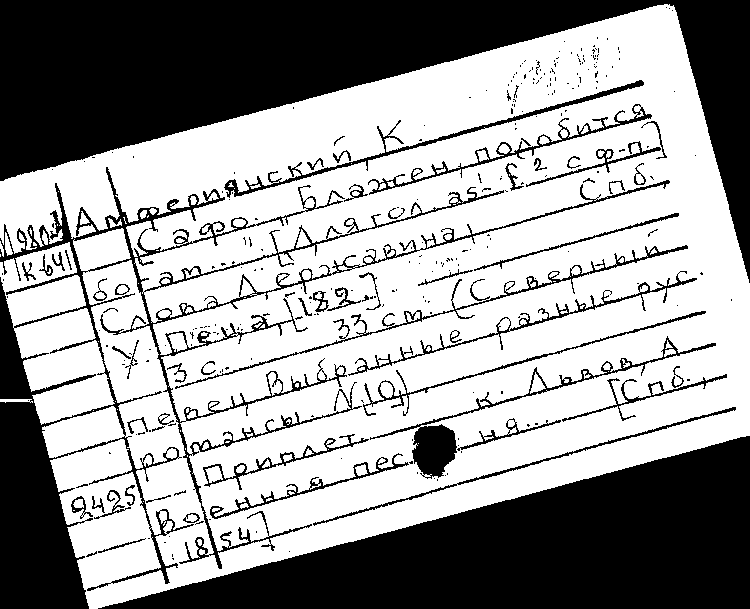 Амферпянский, К.
[Сафо. "Блажен, подобится
богам..." [Для гол. as¹-f² с ф-п.]
Слова Державина, Спб.
У Пеца, [182.]
3 с. 33 см. (Северный
певец. Выбранные разные рус.
романсы. N[10]).
Приплет. к: Львов, А.
2425 Военная песня... [Спб.,
1854]